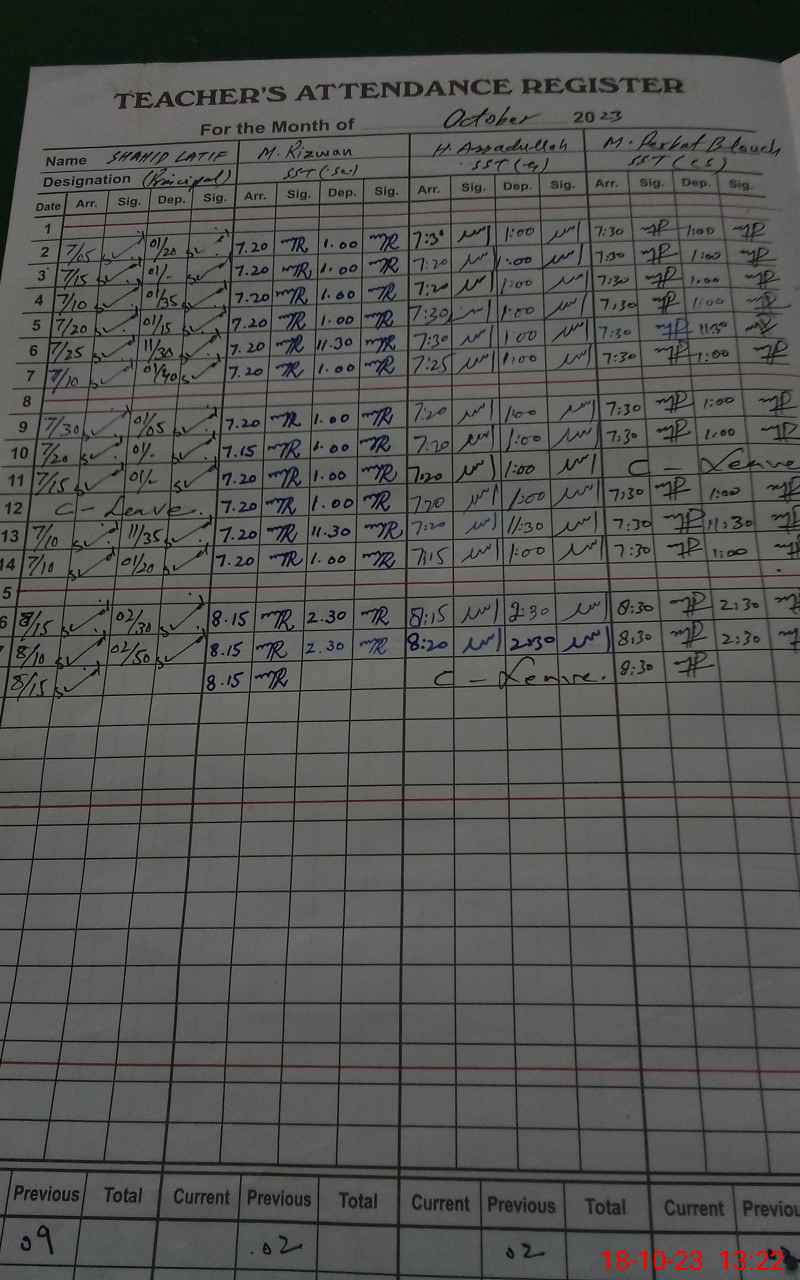 TEACHER'S ATTENDANCE REGISTER
For the Month of October 2023
Name SHAHID LATIF M. Rizwan H. Assadullah M. Blouch
Designation (Principal) SST (Sc) SST (G) SST (CS)
Date Arr. Sig. Dep. Sig. Arr. Sig. Dep. Sig. Arr. Sig. Dep. Sig. Arr. Sig. Dep. Sig.
1
2 7/05 01/20 7.20 MR 1.00 MR 7:30 1:00 7:30 1:00
3 7/15 01/- 7.20 MR 1.00 MR 7:20 1:00 7:30 1:00
4 7/10 01/35 7.20 MR 1.00 MR 7:20 1:00 7:30 1:00
5 7/20 01/15 7.20 MR 1.00 MR 7:30 1:00 7:30 1:00
6 7/25 11/30 7.20 MR 11.30 MR 7:30 1:00 7:30 11:30
7 7/10 01/40 7.20 MR 1.00 MR 7:25 1:00 7:30 1:00
8
9 7/30 01/05 7.20 MR 1.00 MR 7:20 1:00 7:30 1:00
10 7/20 01/- 7.15 MR 1.00 MR 7:20 1:00 7:30 1:00
11 7/15 01/- 7.20 MR 1.00 MR 7:20 1:00 C - Leave
12 C - Leave. 7.20 MR 1.00 MR 7:20 1:00 7:30 1:00
13 7/10 11/35 7.20 MR 11.30 MR 7:20 11:30 7:30 11:30
14 7/10 01/20 7.20 MR 1.00 MR 7:15 1:00 7:30 1:00
5
6 8/15 02/30 8.15 MR 2.30 MR 8:15 2:30 8:30 2:30
8/10 02/50 8.15 MR 2.30 MR 8:20 2:30 8:30 2:30
8/15 8.15 MR C - Leave. 8:30
Previous Total Current Previous Total Current Previous Total Current Previou
09 .02 .02
18-10-23 13:22